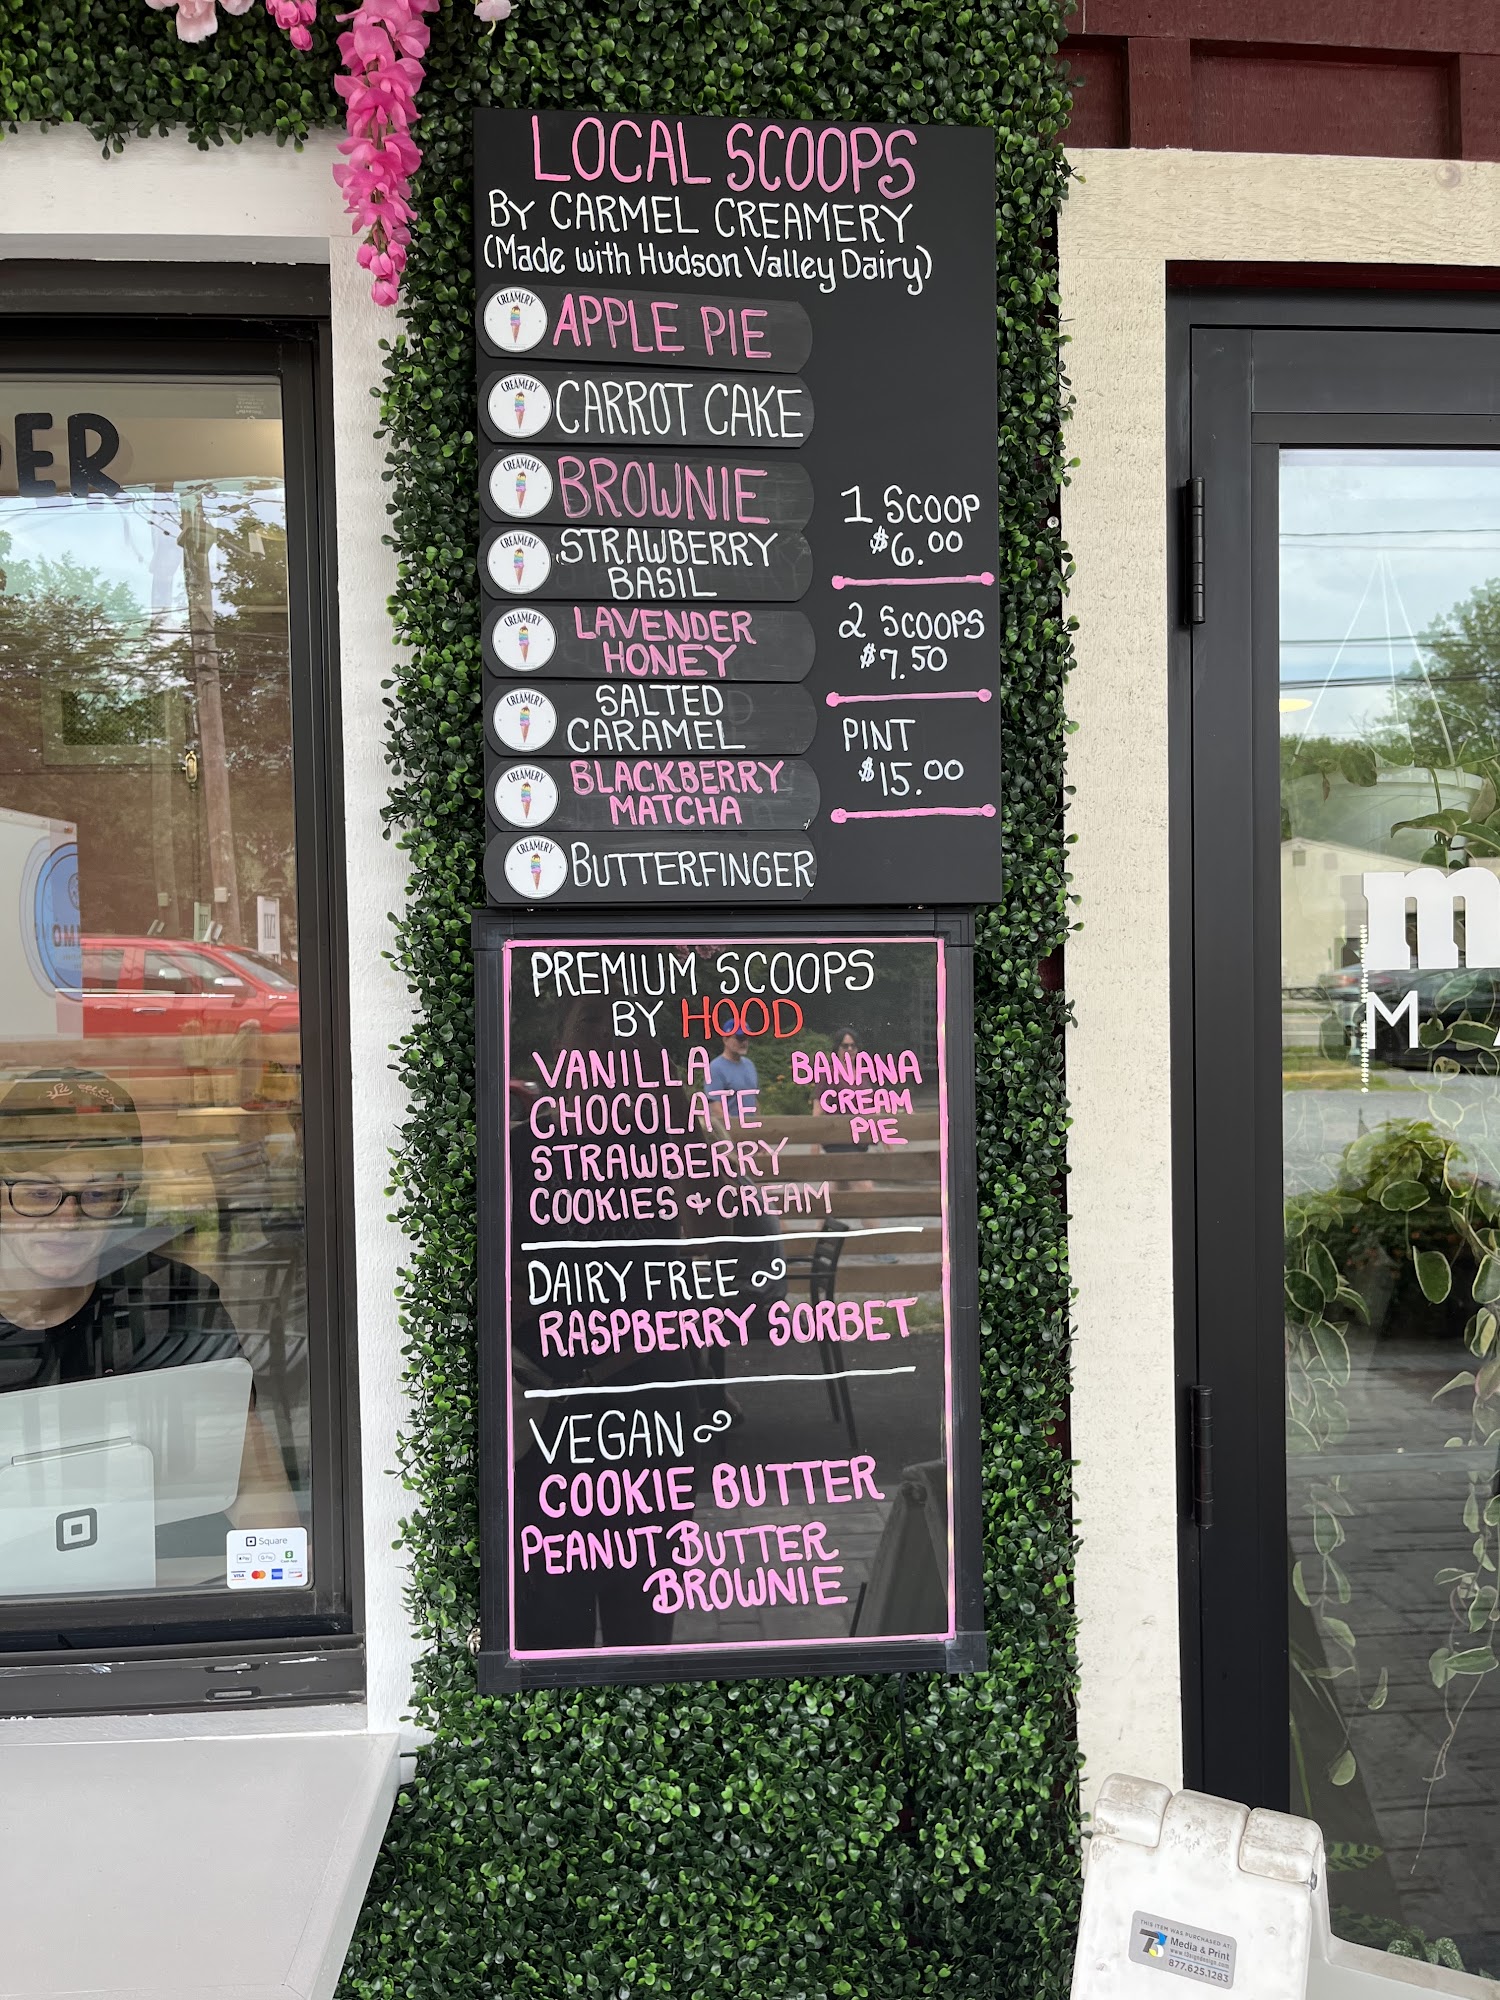 LOCAL SCOOPS
BY CARMEL CREAMERY
(Made with Hudson Valley Dairy)
CREAMERY APPLE PIE
CREAMERY CARROT CAKE
CREAMERY BROWNIE
CREAMERY STRAWBERRY
BASIL
CREAMERY LAVENDER
HONEY
CREAMERY SALTED
CARAMEL
CREAMERY BLACKBERRY
MATCHA
CREAMERY BUTTERFINGER
1 SCOOP
$6.00
2 SCOOPS
$7.50
PINT
$15.00
PREMIUM SCOOPS
BY HOOD
VANILLA
CHOCOLATE
STRAWBERRY
COOKIES & CREAM
BANANA
CREAM
PIE
DAIRY FREE
RASPBERRY SORBET
VEGAN
COOKIE BUTTER
PEANUT BUTTER
BROWNIE
DER
Square
Pay
G Pay
Cash App
VISA
m
M A
THIS ITEM WAS PURCHASED AT:
Media & Print
877.625.1283